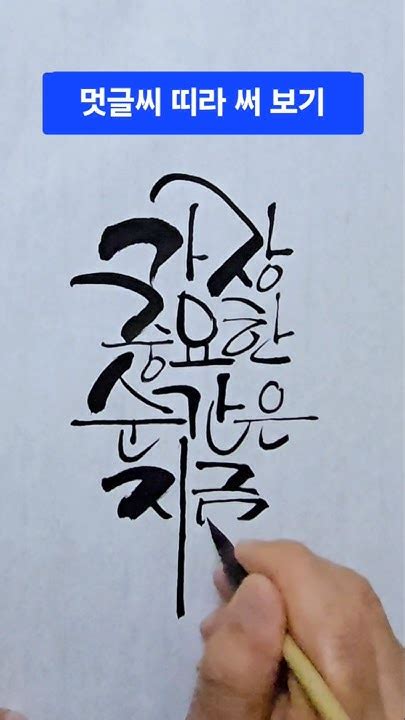 멋글씨 띠라 써 보기
가장
중요한
순간은
지금